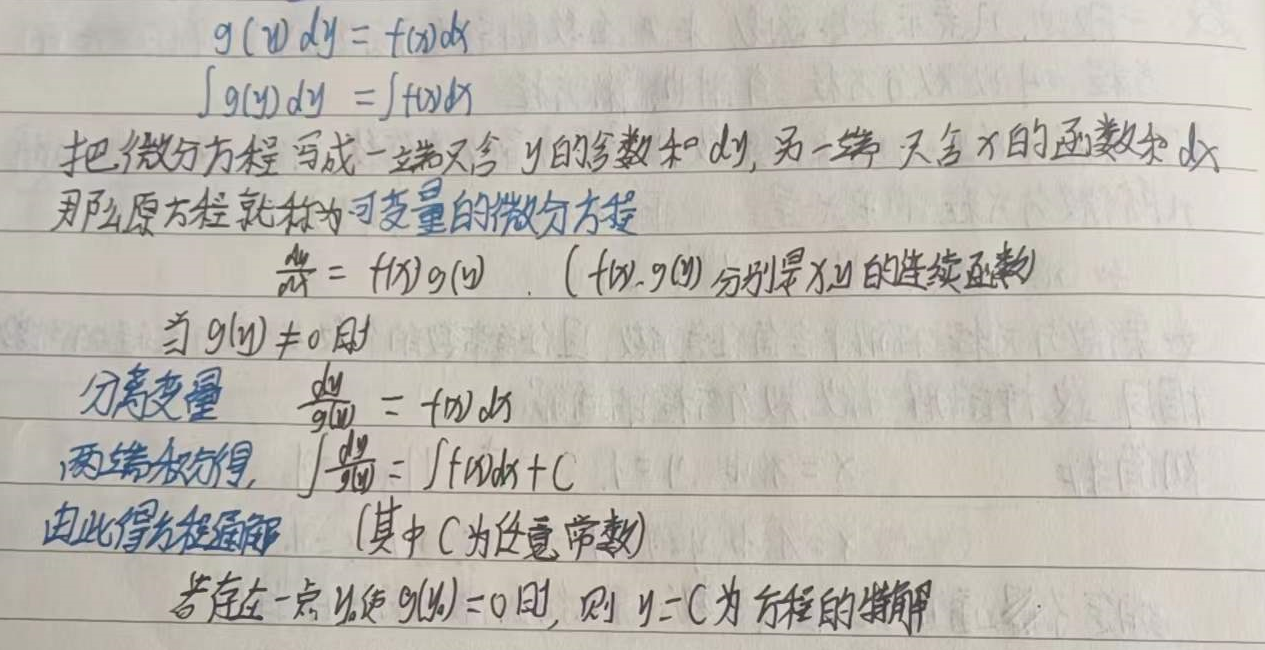 g(y)dy = f(x)dx
∫g(y)dy = ∫f(x)dx
把微分方程写成一端只含 y的函数和 dy, 另一端 只含 x的函数和 dx
那么原方程就称为可变量的微分方程
dy/dx = f(x)g(y) . (f(x).g(y) 分别是x,y的连续函数)
当 g(y) ≠ 0时
分离变量 dy/g(y) = f(x)dx
两端积分得, ∫dy/g(y) = ∫f(x)dx+C
由此得方程通解 (其中 C为任意常数)
若存在一点 y₀使 g(y₀)=0时, 则 y=C为方程的特解